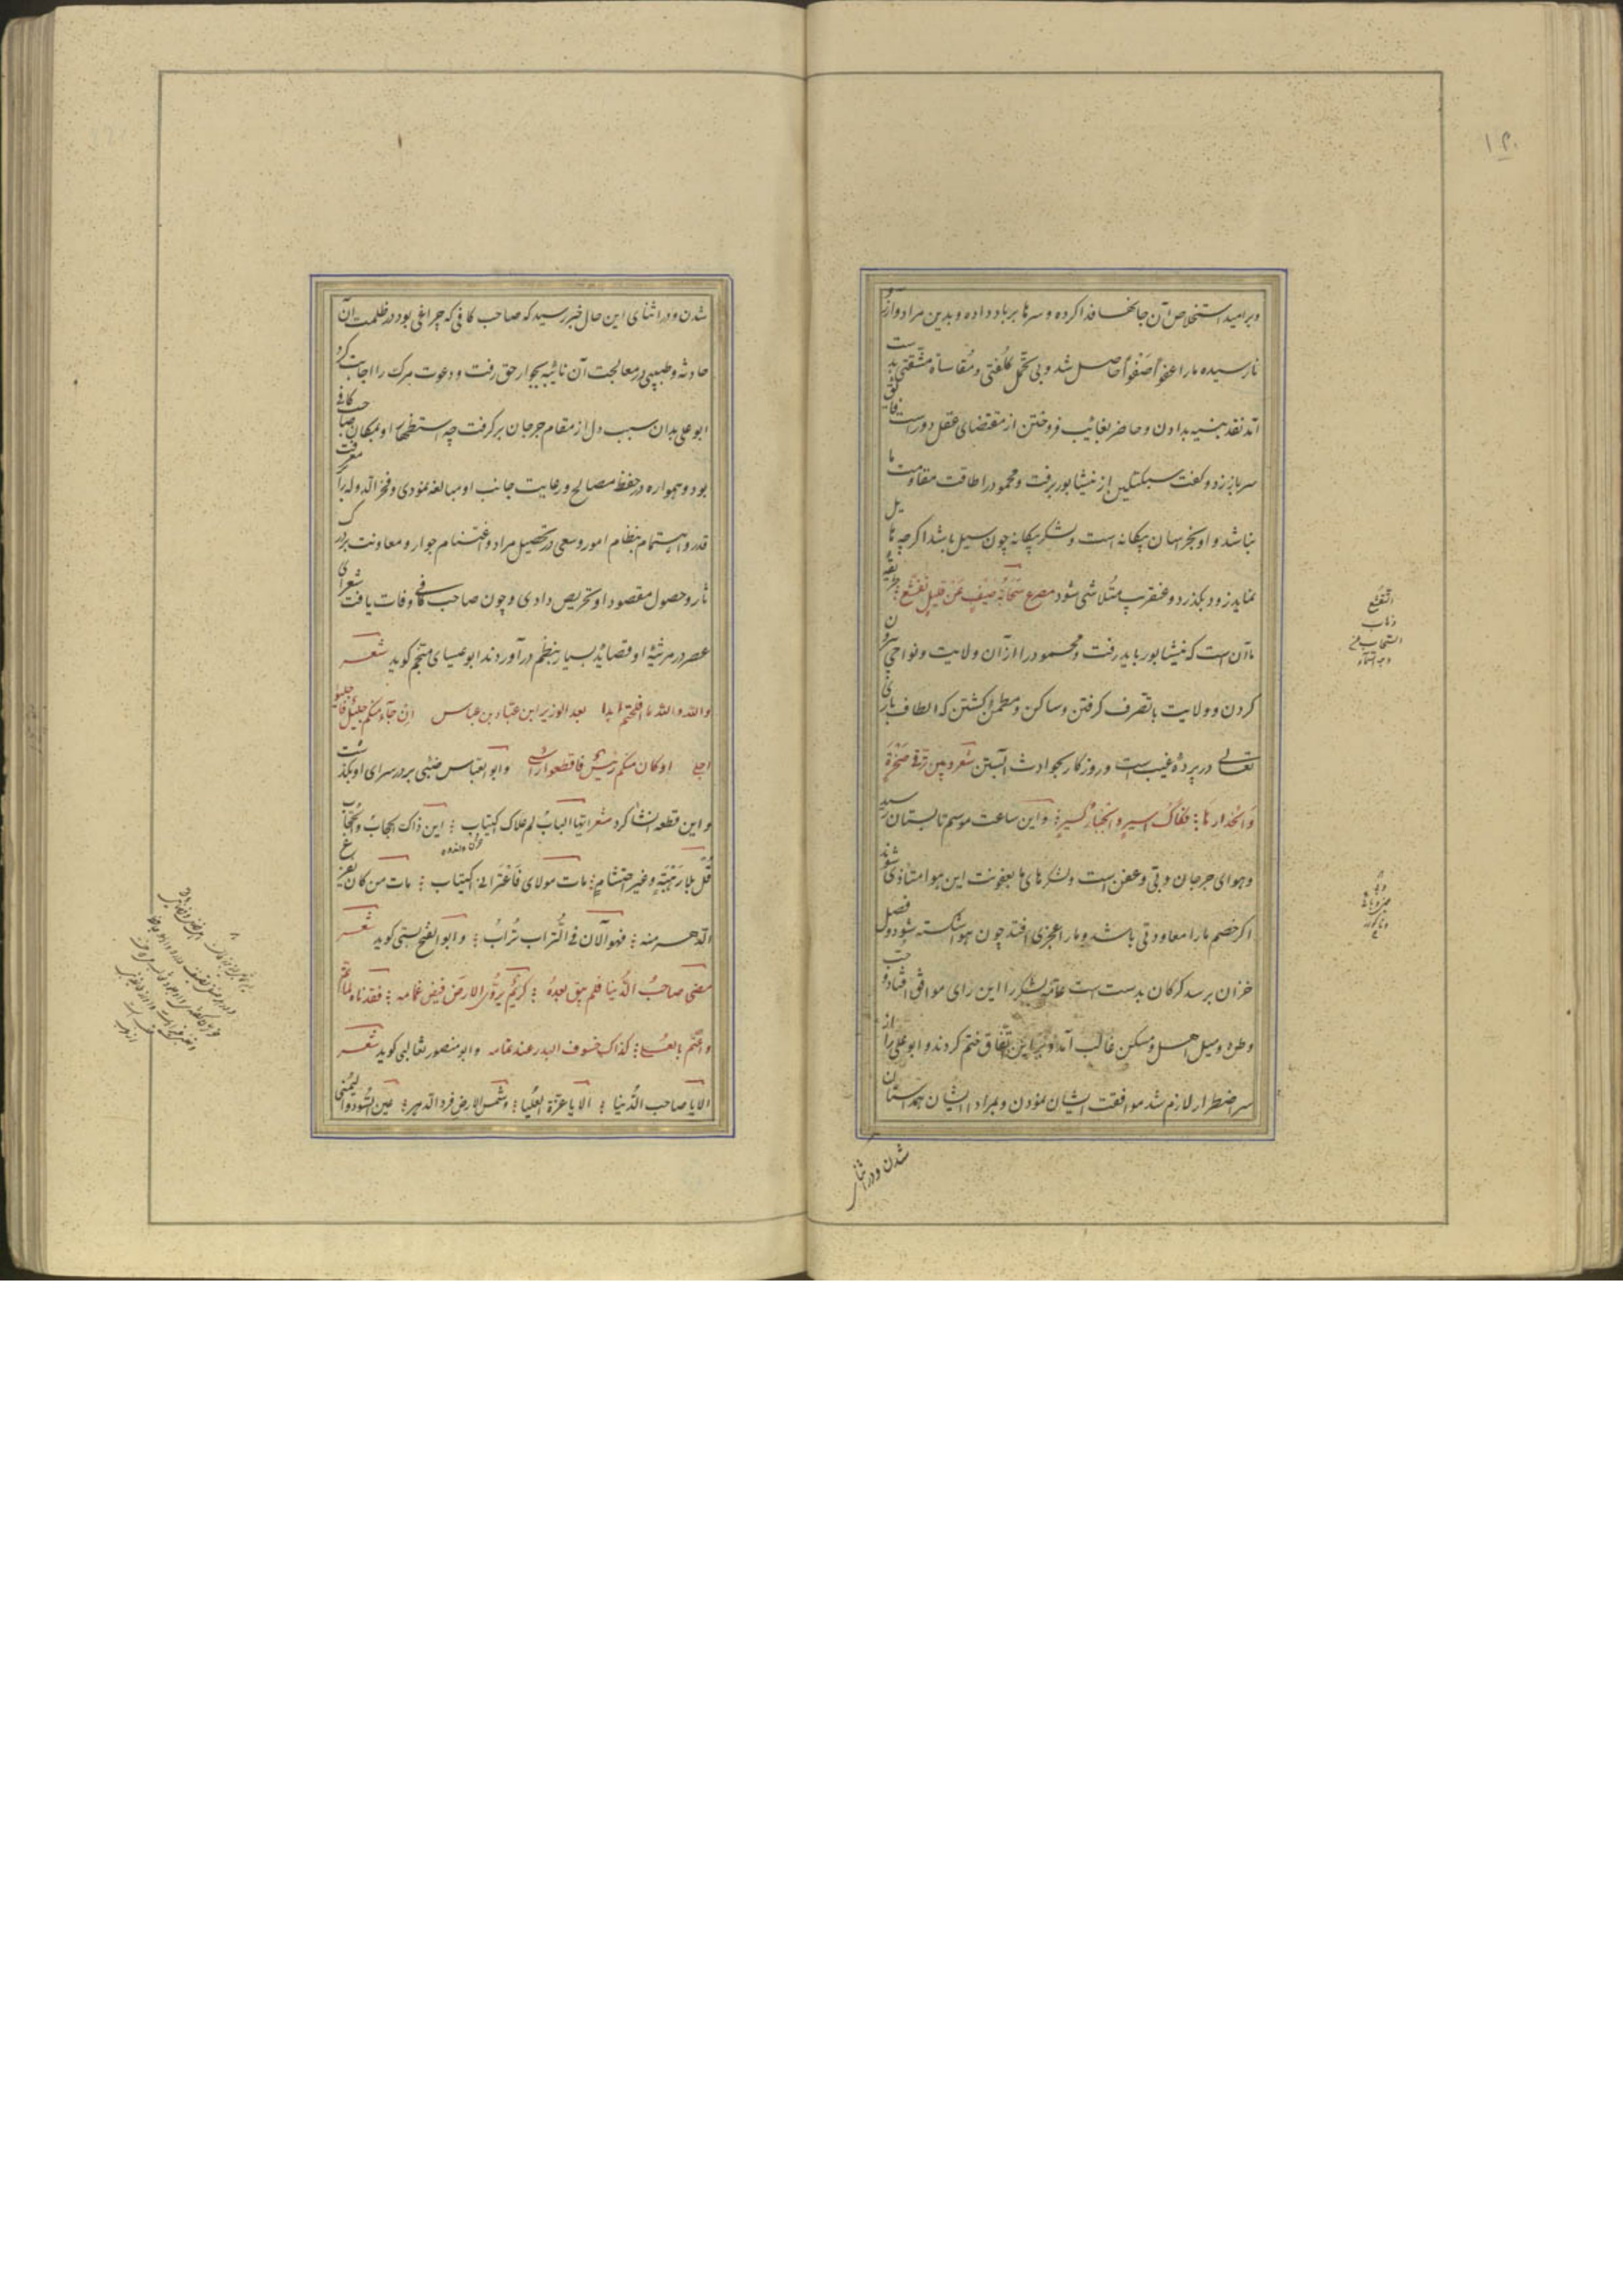 ۱۲۰
و بر امید استخلاص آن جانها فدا کرده و سرها بر باد داده و بدین مراد و آرزو
نارسیده ما را عفواً صفواً حاصل شد و بی تحمل کلفتی و مقاساة مشقتی بدست
آمد نقد بنسیه بدادن و حاضر بغائب فروختن از مقتضای عقل دور است فایق
سر باز زد و گفت سبکتکین از نیشابور برفت و محمود را طاقت مقاومت ما
نباشد و او بخراسان بیکانه است و لشکر بیکانه چون سیل باشد اکر چه هایل
نماید زود بکذرد و عنقریب متلاشی شود مصرع سَحَابَةُ صَیْفٍ عَنْ قَلِیلٍ تَقَشَّعُ طریقه
ما آن است که بنیشابور باید رفت و محمود را از آن ولایت و نواحی بیرون
کردن و ولایت با تصرف کرفتن و ساکن و مطمئن کشتن که الطاف باری
تعالی در پرده غیب است و روزکار بحوادث آبستن شعر و بین ترقی صخرة
و انحدارها ؛ فکاک اسیر و انجبار کسیر ؛ و این ساعت موسم تابستان رسید
و هوای جرجان وبی و عفن است و لشکرهای ما بعفونت این هوا متأذی شوند
اکر خصم ما را معاودتی باشد و ما را عجزی افتد چون هوا شکسته شود و فصل
خزان برسد کرکان بدست است عامه لشکر را این رای موافق افتاد و حب
وطن و میل اهل و مسکن غالب آمد و بر این اتفاق ختم کردند و ابو علی را از
سر اضطرار لازم شد موافقت ایشان نمودن و بمراد ایشان همداستان
شدن و در اثنای
التقشع
ذهاب
السحاب
شدن و در اثنای این حال خبر رسید که صاحب کافی که چراغی بود در ظلمت آن
حادثه و طبیبی در معالجت آن نائبه بجوار حق رفت و دعوت مرک را اجابت کرد
ابو علی بدان سبب دل از مقام جرجان بر کرفت چه استظهار او بمکان صاحب کافی
بود و همواره در حفظ مصالح و رعایت جانب او مبالغه نمودی و فخر الدوله را بر معرفت
قدر و اهتمام بنظام امور و سعی در تحصیل مراد و اغتنام جوار و معاونت بر درک
ثار و حصول مقصود او تحریص دادی و چون صاحب کافی وفات یافت شعرای
عصر در مرثیه او قصائد بسیار بنظم در آوردند ابو عیسای منجم کوید شعر
والله والله ما افلحتم ابدا بعد الوزیر ابن عباد بن عباس ان جاء منکم جلیل فاجلبوا
اجلی او کان منکم رئیس فاقطعوا راسی و ابو العباس ضبی بر در سرای او بکذشت
و این قطعه انشا کرد شعر ایها الباب لم علاک اکتئاب ؛ این ذاک الحجاب و الحجاب
قُل بلا رهبة و غیر احتشام ؛ مات مولای فاعترانی اکتئاب ؛ مات من کان یفزع
الدهر منه ؛ فهو الآن فی التراب تراب ؛ و ابو الفتح بستی کوید شعر
مضی صاحب الدنیا فلم یبق بعده ؛ کریم یروی الارض فیض غمامه ؛ فقدناه لما تم
و اعتم بالعلی ؛ کذاک خسوف البدر عند تمامه و ابو منصور ثعالبی کوید شعر
الا یا صاحب الدنیا ؛ الا یا غرة العلیا ؛ و شمس الارض فرد الدهر ؛ عین السودد الیمنی